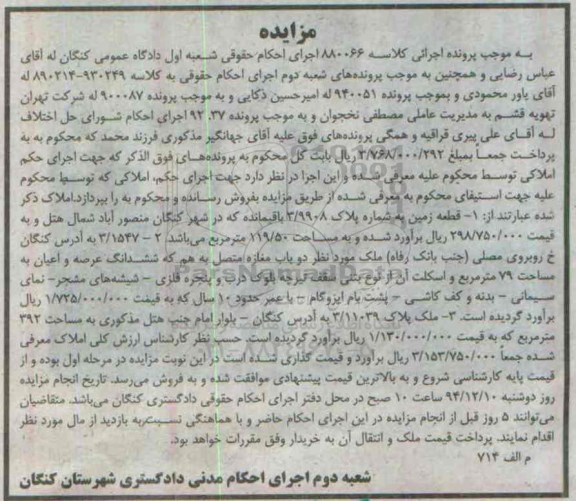 مزایده
به موجب پرونده اجرائی کلاسه ۸۸۰۰۶۶ اجرای احکام حقوقی شعبه اول دادگاه عمومی کنگان له آقای
عباس رضایی و همچنین به موجب پرونده‌های شعبه دوم اجرای احکام حقوقی به کلاسه ۹۳۰۲۴۹-۸۹۰۲۱۴ له
آقای یاور محمودی و بموجب پرونده ۹۴۰۰۵۱ له امیرحسین ذکایی و به موجب پرونده ۹۰۰۰۸۷ له شرکت تهران
تهویه قشم به مدیریت عاملی مصطفی نخجوان و به موجب پرونده ۹۲.۳۷ اجرای احکام شورای حل اختلاف
له آقای علی پیری قراقیه و همگی پرونده‌های فوق علیه آقای جهانگیر مذکوری فرزند محمد که محکوم به به
پرداخت جمعاً بمبلغ ۲/۷۶۸/۰۰۰/۲۹۲ ریال بابت کل محکوم به پرونده‌های فوق الذکر که جهت اجرای حکم
املاکی توسط محکوم علیه معرفی شده و این اجرا در نظر دارد جهت اجرای حکم، املاکی که توسط محکوم
علیه جهت استیفای محکوم به معرفی شده از طریق مزایده بفروش رسانده و محکوم به را بپردازد.املاک ذکر
شده عبارتند از: ۱- قطعه زمین به شماره پلاک ۳/۹۹۰۸ باقیمانده که در شهر کنگان منصور آباد شمال هتل و به
قیمت ۲۹۸/۷۵۰/۰۰۰ ریال برآورد شده و به مساحت ۱۱۹/۵۰ مترمربع می‌باشد ۲ – ۳/۱۵۴۷ به آدرس کنگان
خ روبروی مصلی (جنب بانک رفاه) ملک مورد نظر دو باب مغازه متصل به هم که ششدانگ عرصه و اعیان به
مساحت ۷۹ مترمربع و اسکلت آن از نوع بتنی سقف تیرچه بلوک درب و پنجره فلزی – شیشه‌های مشجر- نمای
سیمانی – بدنه و کف کاشی – پشت بام ایزوگام – با عمر حدود ۱۰ سال که به قیمت ۱/۷۲۵/۰۰۰/۰۰۰ ریال
برآورد گردیده است. ۳- ملک پلاک ۳/۱۱۰۳۹ به آدرس کنگان – بلوار امام جنب هتل مذکوری به مساحت ۳۹۲
مترمربع که به قیمت ۱/۱۳۰/۰۰۰/۰۰۰ ریال برآورد گردیده است. حسب نظر کارشناس ارزش کلی املاک معرفی
شده جمعاً ۳/۱۵۳/۷۵۰/۰۰۰ ریال برآورد و قیمت گذاری شده است در این نوبت مزایده در مرحله اول بوده و از
قیمت پایه کارشناسی شروع و به بالاترین قیمت پیشنهادی موافقت شده و به فروش می‌رسد. تاریخ انجام مزایده
روز دوشنبه ۹۴/۱۲/۱۰ ساعت ۱۰ صبح در محل دفتر اجرای احکام حقوقی دادگستری کنگان می‌باشد. متقاضیان
می‌توانند ۵ روز قبل از انجام مزایده در این اجرای احکام حاضر و با هماهنگی نسبت به بازدید از مال مورد نظر
اقدام نمایند. پرداخت قیمت ملک و انتقال آن به خریدار وفق مقررات خواهد بود.
م الف ۷۱۴
شعبه دوم اجرای احکام مدنی دادگستری شهرستان کنگان
ParsNamadData